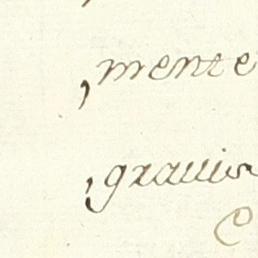 ,mente
,gravis